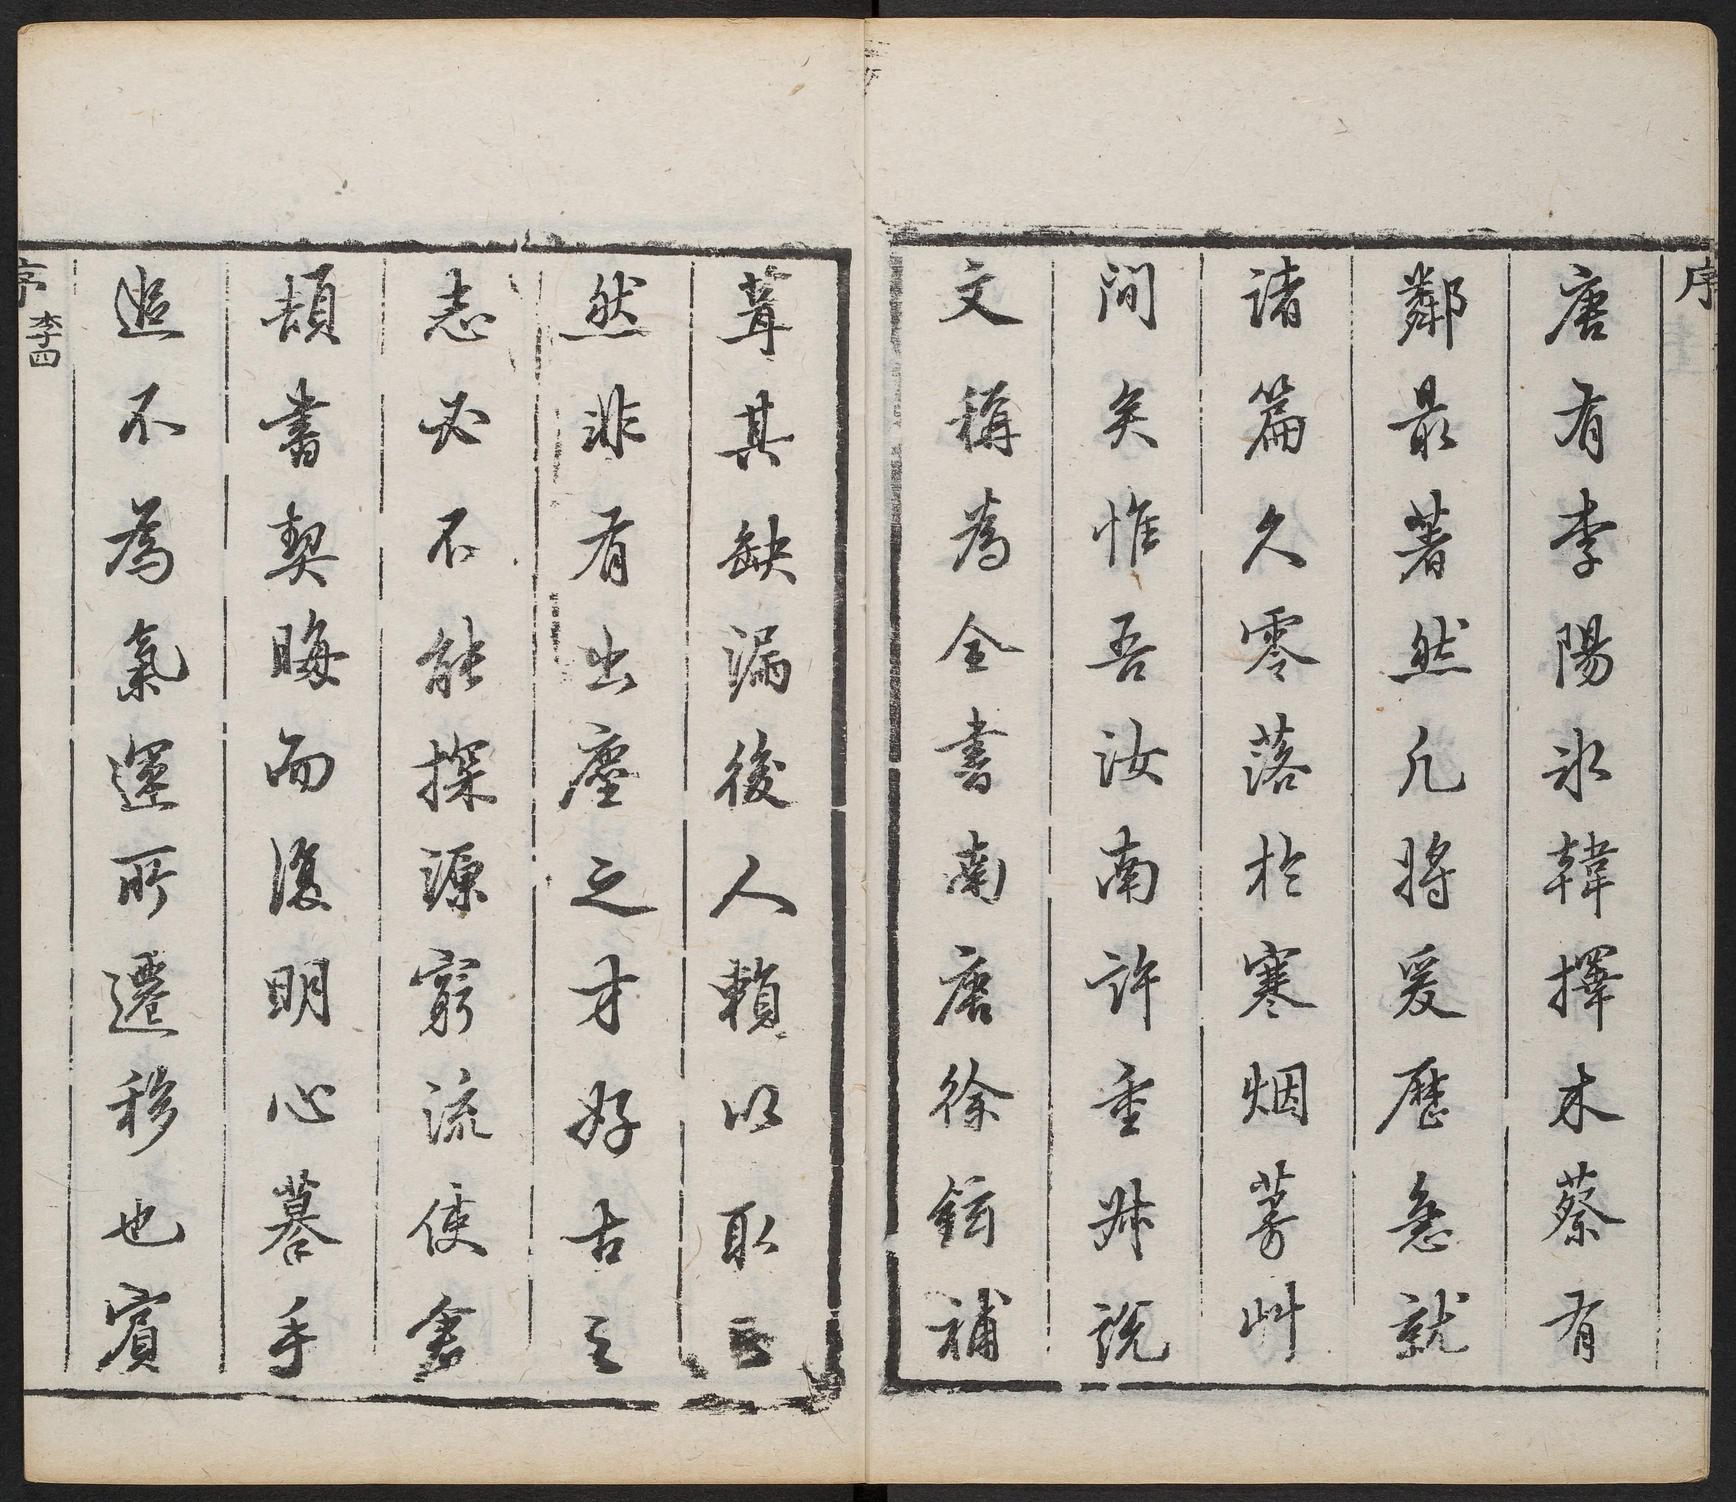 序
唐有李陽冰韓擇木蔡有
鄰最著然凡將爰歷急就
諸篇久零落於寒烟蔓艸
間矣惟吾汝南許重叔說
文稱為全書南唐徐鉉補
葺其缺漏後人賴以取正
然非有出塵之才好古之
志必不能探源窮流使倉
頡書契晦而復明心摹手
追不為氣運所遷移也賓
序 李四